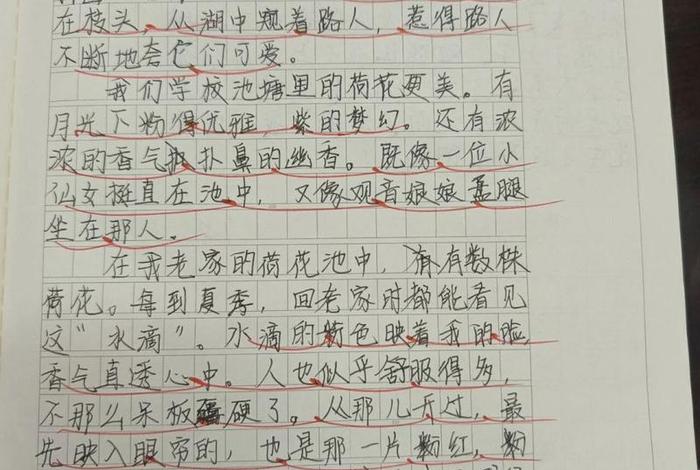 在枝头，从湖中窥着路人，惹得路人
不断地夸它们可爱。
我们学校池塘里的荷花更美。有
月光下粉得优雅，紫的梦幻。还有浓
浓的香气扑鼻的幽香。既像一位小
仙女挺直在池中，又像观音娘娘盂腿
坐在那人。
在我老家的荷花池中，有有数株
荷花。每到夏季，回老家时都能看见
这“水滴”。水滴的粉色映着我的脸，
香气直透心中。人也似乎舒服得多，
不那么呆板硬了。从那儿开过，最
先映入眼帘的，也是那一片粉红，粉